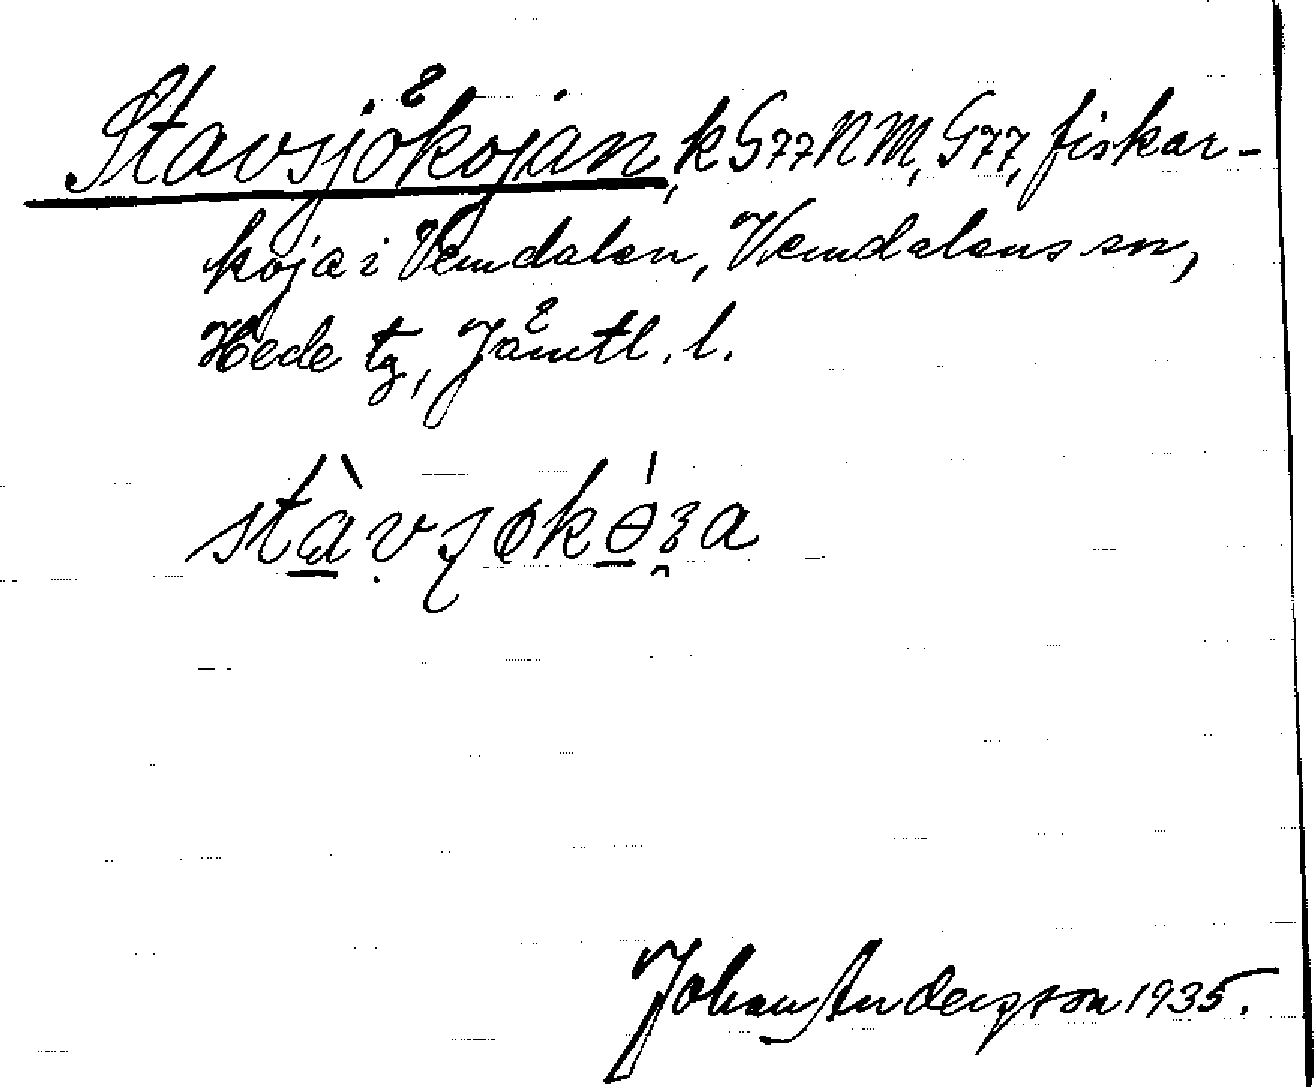 Stavsjökojan, k G77NM, G77, fiskar-
koja i Vemdalen, Vemdalens sn,
Hede tg, Jämtl. l.
Johan Anderzson 1935.